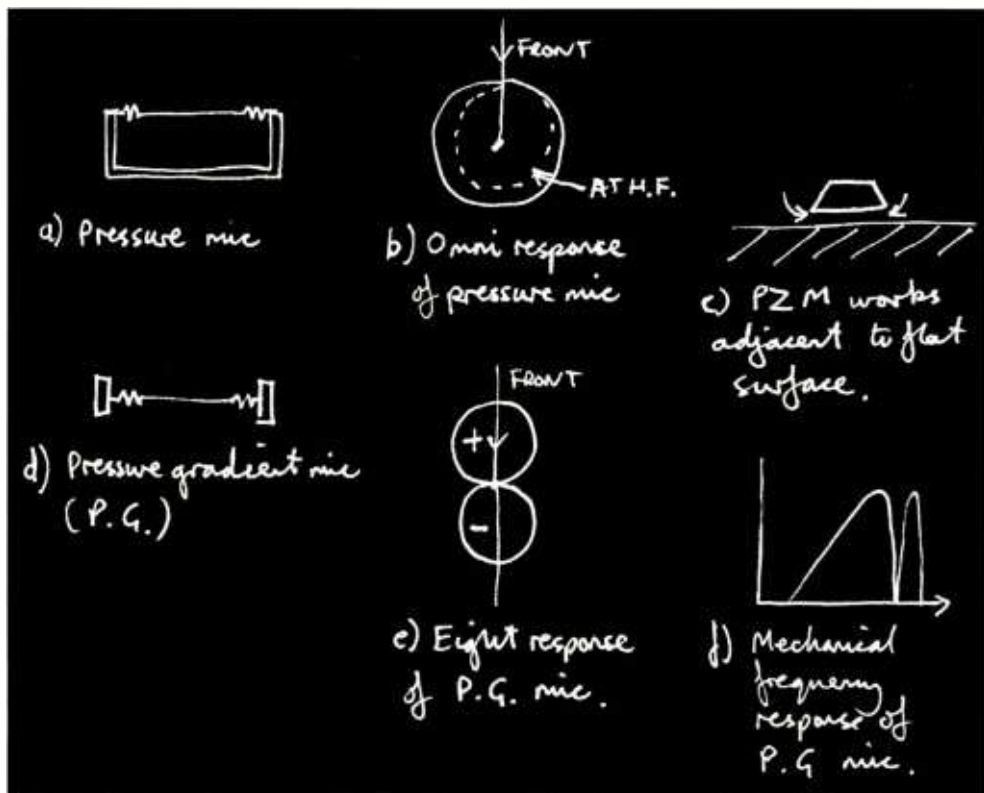 FRONT
AT H.F.
a) Pressure mic
b) Omni response
of pressure mic
c) PZM works
adjacent to flat
surface.
d) Pressure gradient mic
(P.G.)
FRONT
+
-
e) Eight response
of P.G. mic.
f) Mechanical
frequency
response of
P.G mic.